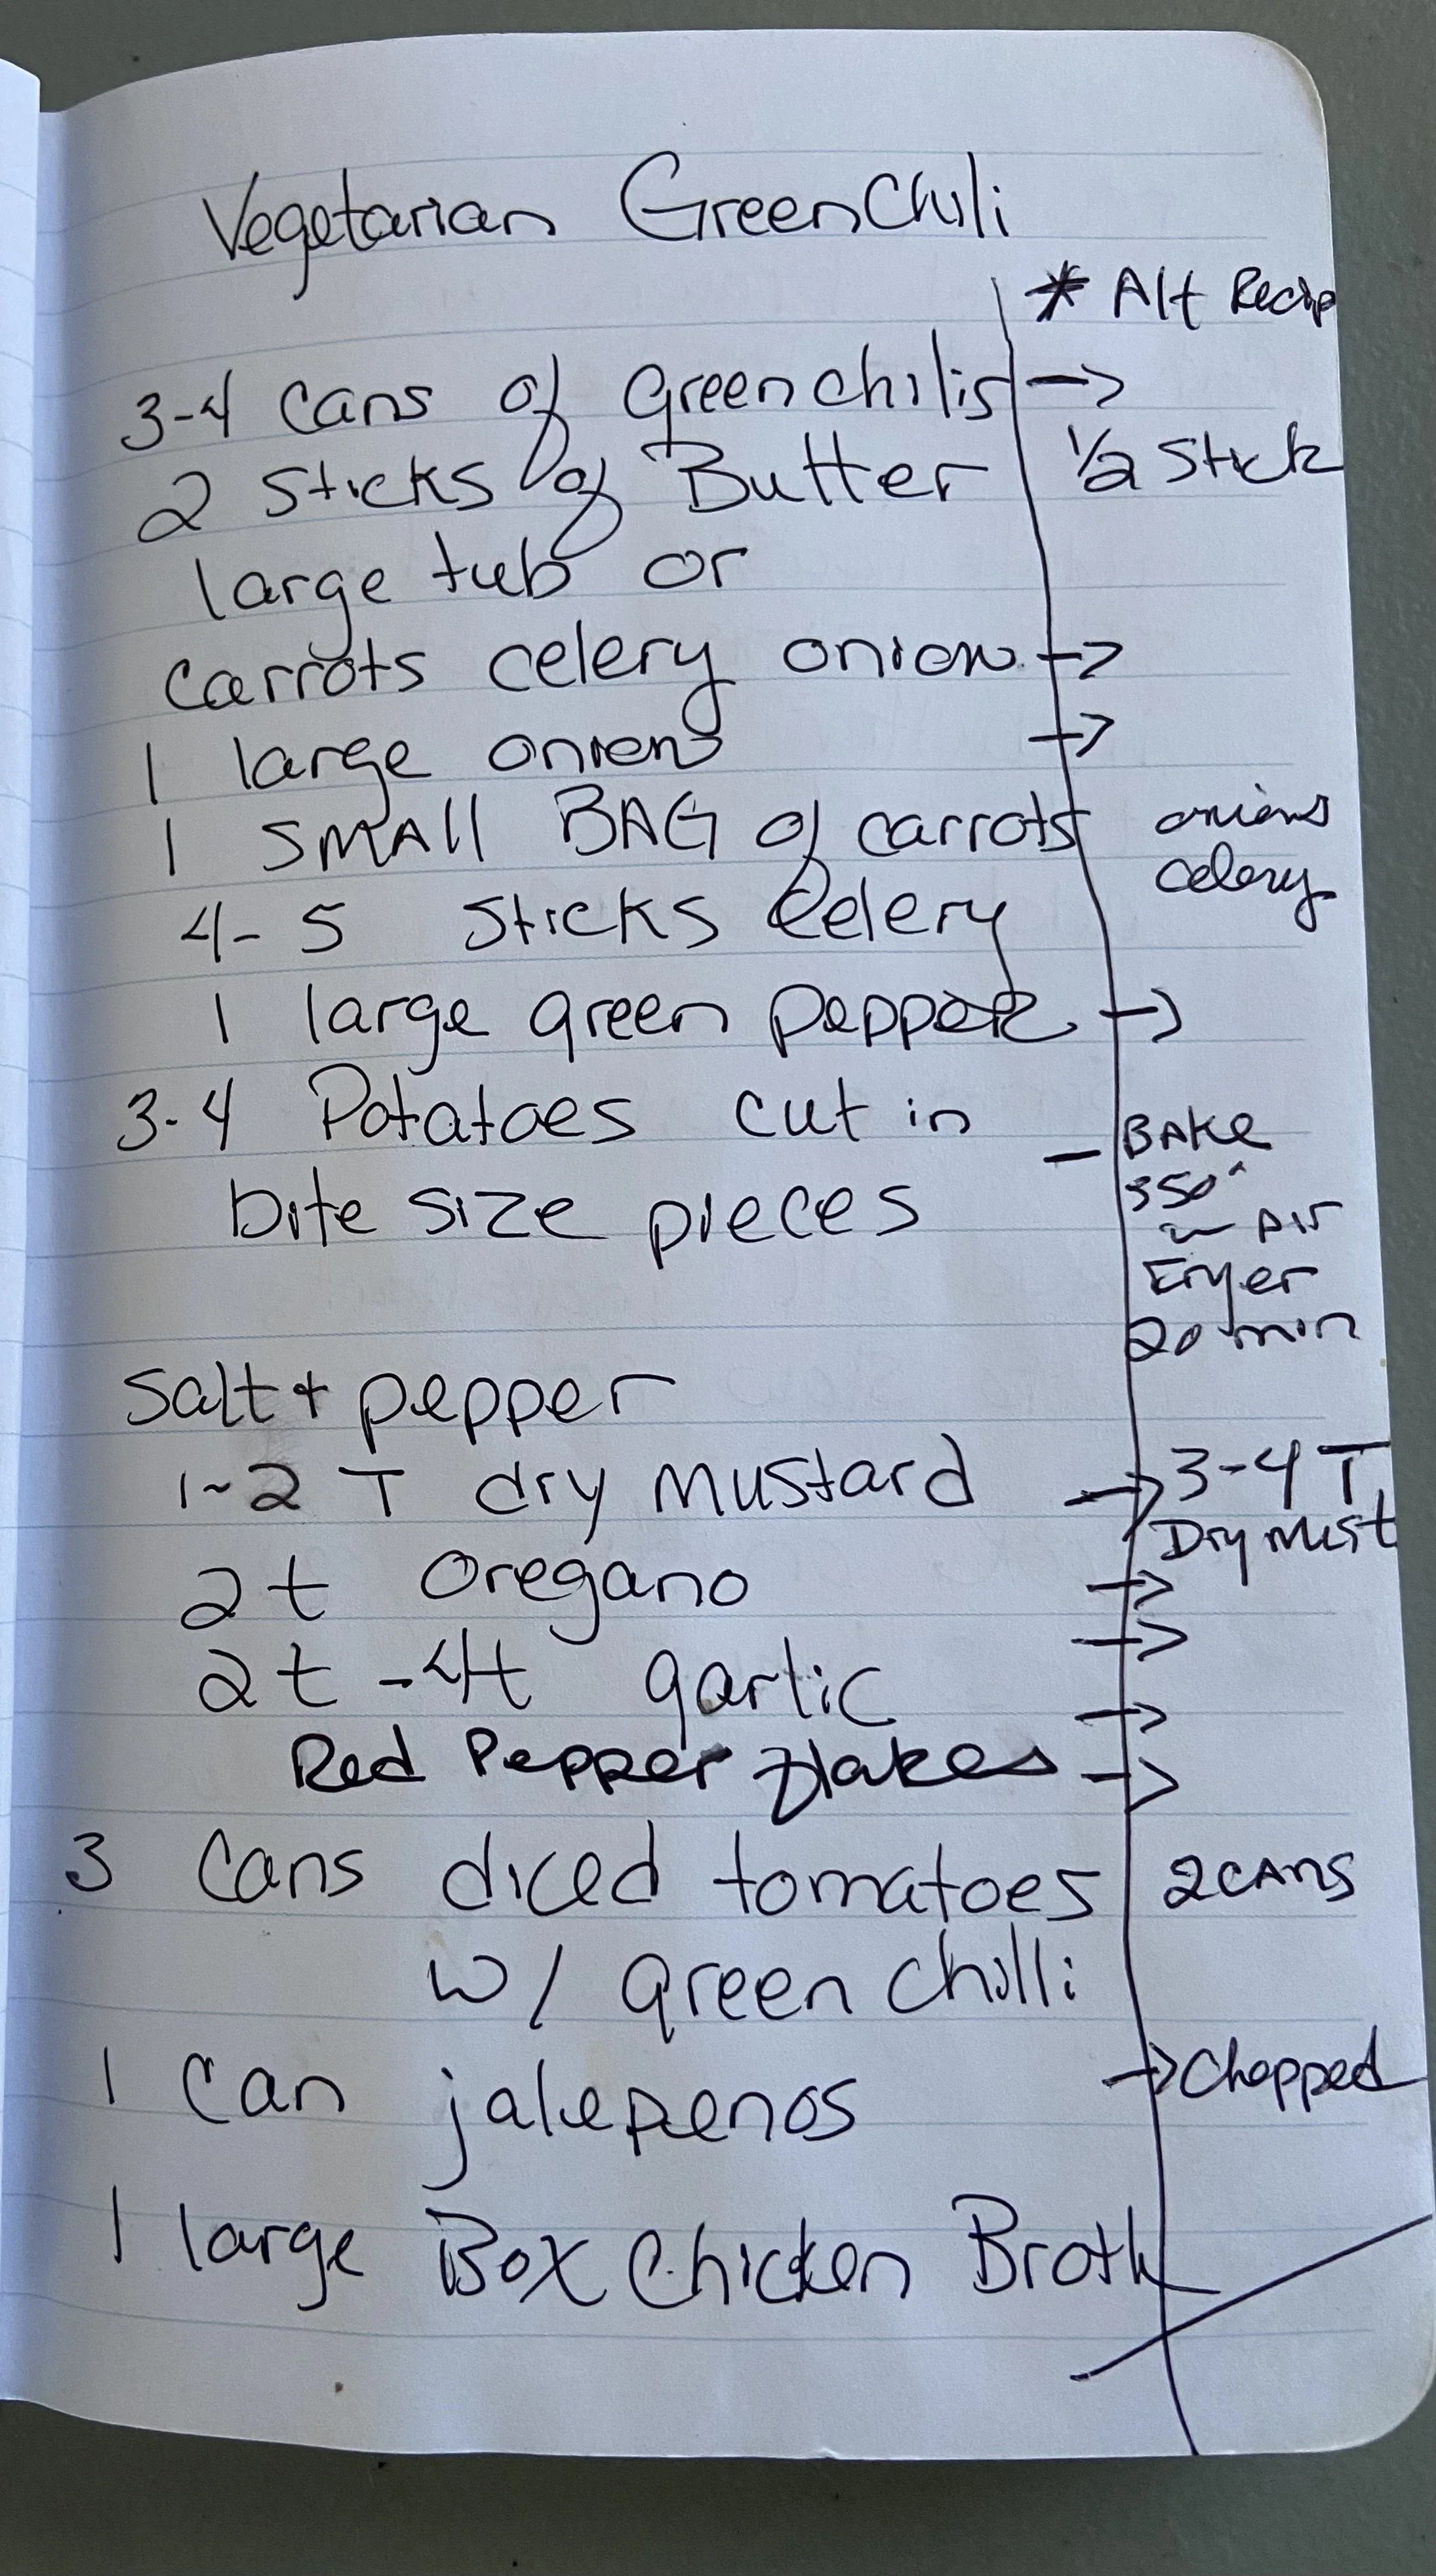 Vegetarian Green Chili
* Alt Recip
3-4 Cans of green chilis →
2 Sticks of Butter 1/2 Stick
large tub or
Carrots celery onion →
1 large onion →
1 SMAll BAG of carrots onions
celery
4-5 Sticks Celery
1 large green pepper →
3-4 Potatoes cut in
bite size pieces
- BAKe
350°
in Air
Fryer
20 min
Salt + pepper
1-2 T dry mustard → 3-4 T
Dry Must
2t Oregano →
2t - 4t garlic →
→
Red Pepper flakes →
3 Cans diced tomatoes 2 CANS
w/ green chilli
1 Can jalepenos → Chopped
1 large Box Chicken Broth